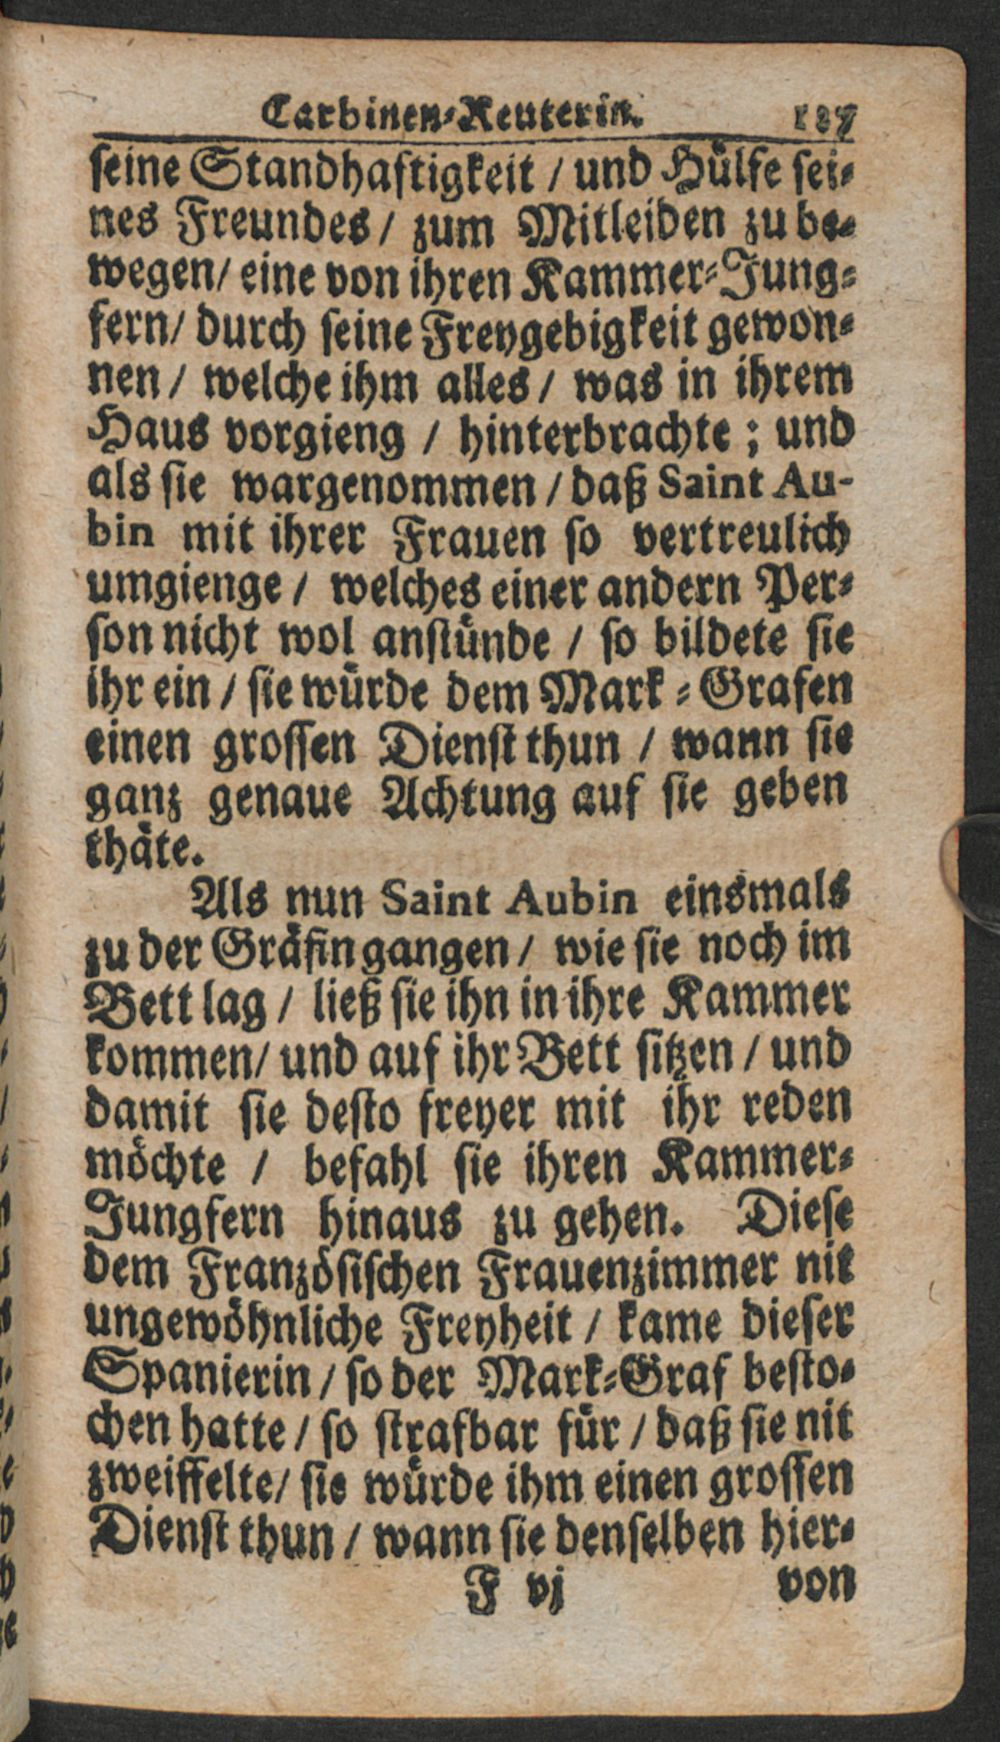 Carbinen-Reuterin. 127
seine Standhaftigkeit / und Hülfe sei-
nes Freundes / zum Mitleiden zu be-
wegen / eine von ihren Kammer-Jung-
fern / durch seine Freygebigkeit gewon-
nen / welche ihm alles / was in ihrem
Haus vorgieng / hinterbrachte ; und
als sie wargenommen / daß Saint Au-
bin mit ihrer Frauen so vertreulich
umgienge / welches einer andern Per-
son nicht wol anstünde / so bildete sie
ihr ein / sie würde dem Mark-Grafen
einen grossen Dienst thun / wann sie
ganz genaue Achtung auf sie geben
thäte.
Als nun Saint Aubin einsmals
zu der Gräfin gangen / wie sie noch im
Bett lag / ließ sie ihn in ihre Kammer
kommen / und auf ihr Bett sitzen / und
damit sie desto freyer mit ihr reden
möchte / befahl sie ihren Kammer-
Jungfern hinaus zu gehen. Diese
dem Französischen Frauenzimmer nit
ungewöhnliche Freyheit / kame dieser
Spanierin / so der Mark-Graf besto-
chen hatte / so strafbar für / daß sie nit
zweiffelte / sie würde ihm einen grossen
Dienst thun / wann sie denselben hier-
F vj von